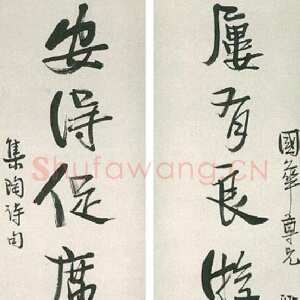 國華尊兄
屢有良游
安得促席
集陶詩句
Shufawang.CN